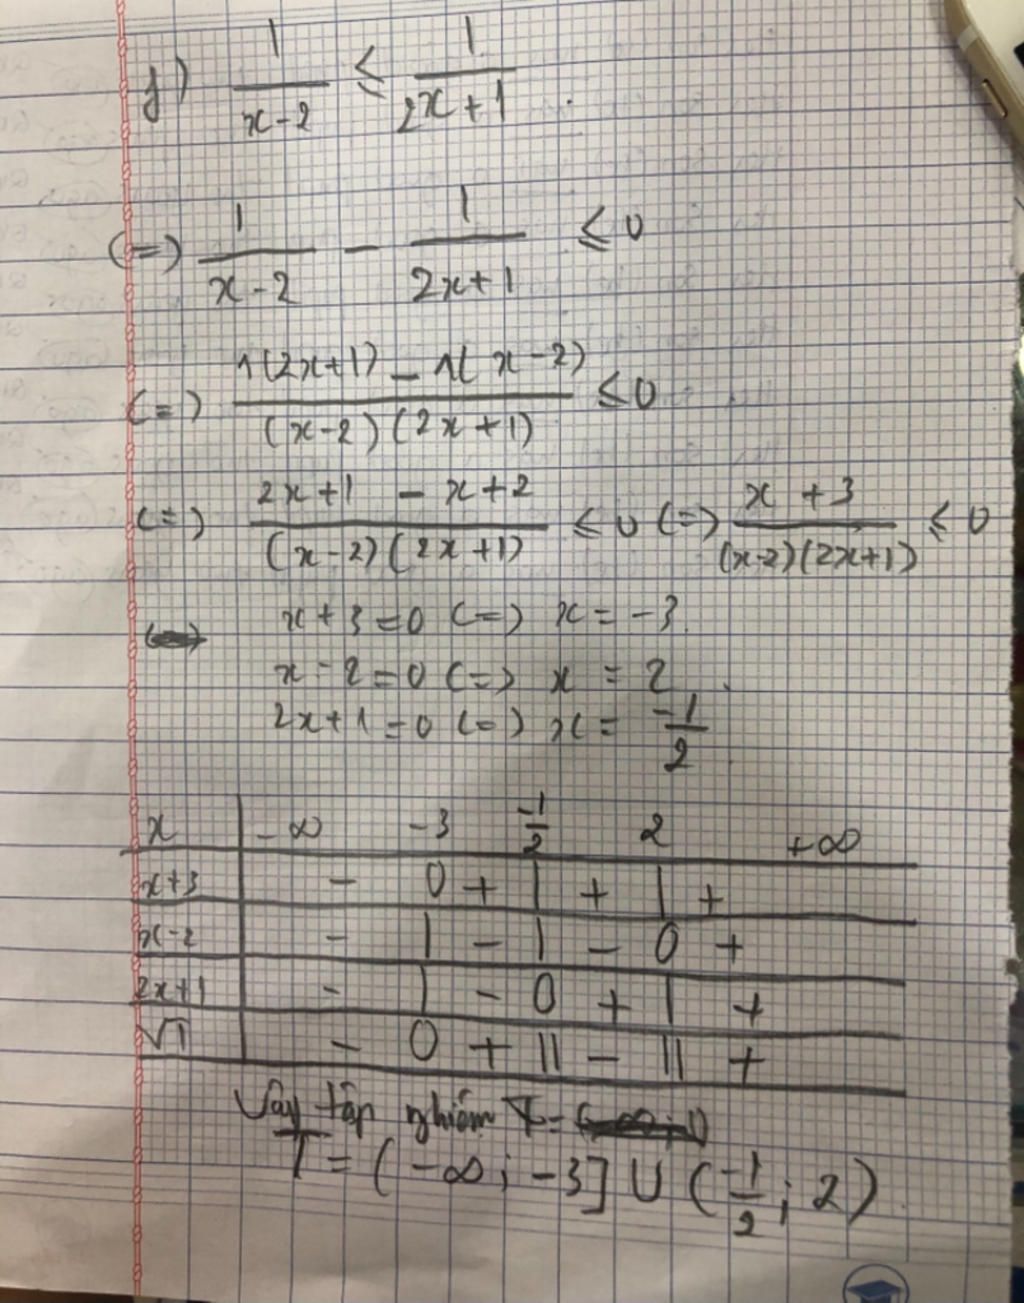 f) 1/(x-2) ≤ 1/(2x+1).
(=) 1/(x-2) - 1/(2x+1) ≤ 0
(=) (1(2x+1) - 1(x-2))/((x-2)(2x+1)) ≤ 0
(=) (2x+1 - x+2)/((x-2)(2x+1)) ≤ 0 (=) (x+3)/((x-2)(2x+1)) ≤ 0
x+3=0 (=) x=-3.
x-2=0 (=) x = 2.
2x+1=0 (=) x = -1/2.
x | -∞ -3 -1/2 2 +∞
x+3 | - 0 + | + | +
x-2 | - | - | - 0 +
2x+1 | - | - 0 + | +
VT | - 0 + || - || +
Vậy tập nghiệm T=
T = (-∞; -3] ∪ (-1/2; 2)